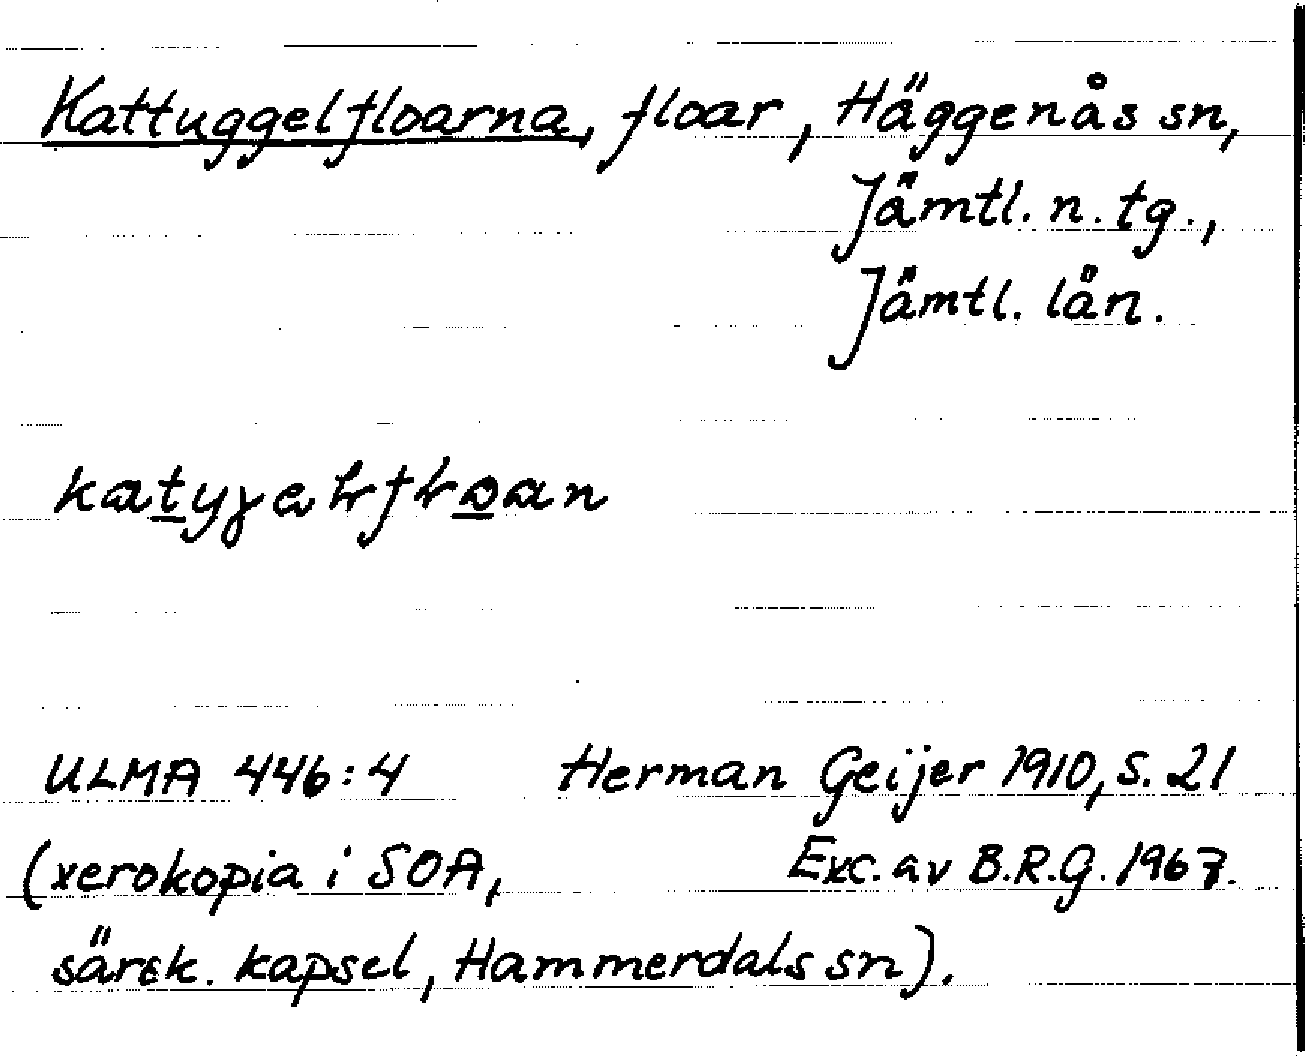 Kattuggelfloarna, floar, Häggenås sn,
Jämtl. n. tg.,
Jämtl. län.
ULMA 446:4 Herman Geijer 1910, s. 21
(xerokopia i SOA, Exc. av B.R.G. 1967.
särsk. kapsel, Hammerdals sn).